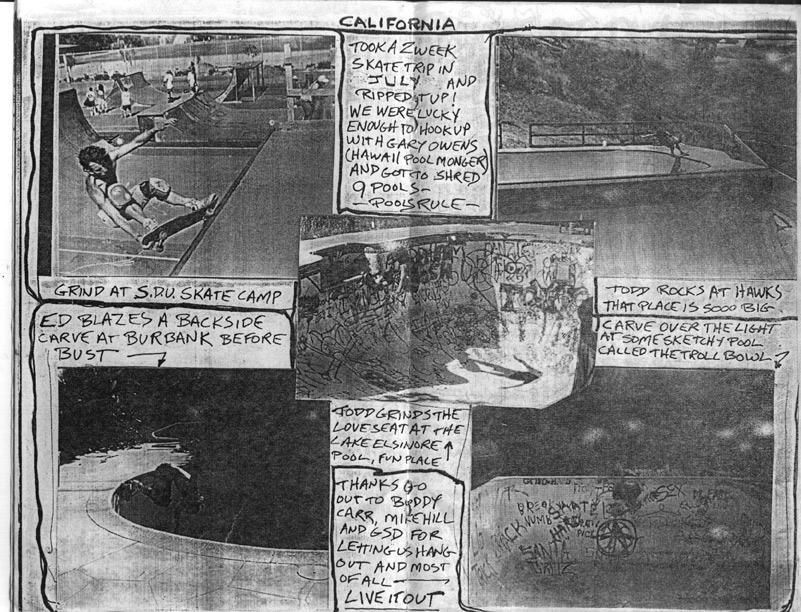 CALIFORNIA
TOOK A 2 WEEK
SKATE TRIP IN
JULY AND
RIPPED IT UP!
WE WERE LUCKY
ENOUGH TO HOOK UP
WITH GARY OWENS
(HAWAII POOL MONGER)
AND GOT TO SHRED
9 POOLS -
- POOLS RULE -
GRIND AT S.D.U. SKATE CAMP
TODD ROCKS AT HAWKS
THAT PLACE IS SOOO BIG
ED BLAZES A BACKSIDE
CARVE AT BURBANK BEFORE
BUST
CARVE OVER THE LIGHT
AT SOME SKETCHY POOL
CALLED THE TROLL BOWL
TODD GRINDS THE
LOVESEAT AT THE
LAKE ELSINORE
POOL, FUN PLACE
THANKS GO
OUT TO BUDDY
CARR, MIKE HILL
AND GSD FOR
LETTING US HANG
OUT AND MOST
OF ALL
LIVE IT OUT
SKATE
SANTA
CRUZ